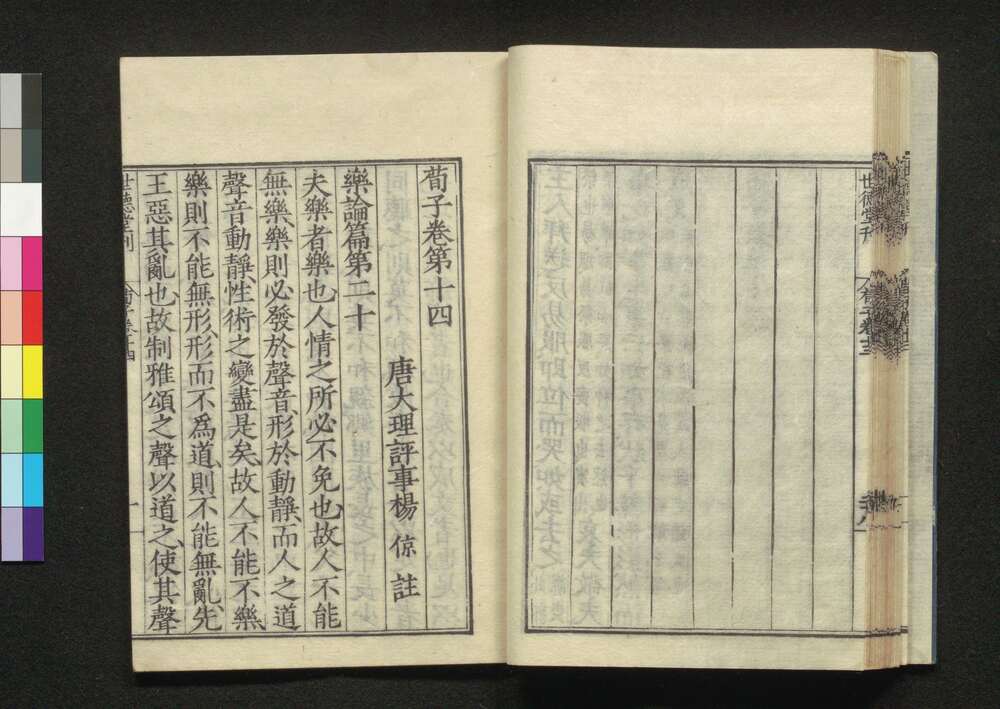 世德堂刊
荀子卷十三
荀子卷第十四
唐大理評事楊倞註
樂論篇第二十
夫樂者樂也人情之所必不免也故人不能
無樂樂則必發於聲音形於動靜而人之道
聲音動靜性術之變盡是矣故人不能不樂
樂則不能無形形而不爲道則不能無亂先
王惡其亂也故制雅頌之聲以道之使其聲
世德堂刊
荀子卷十四
一